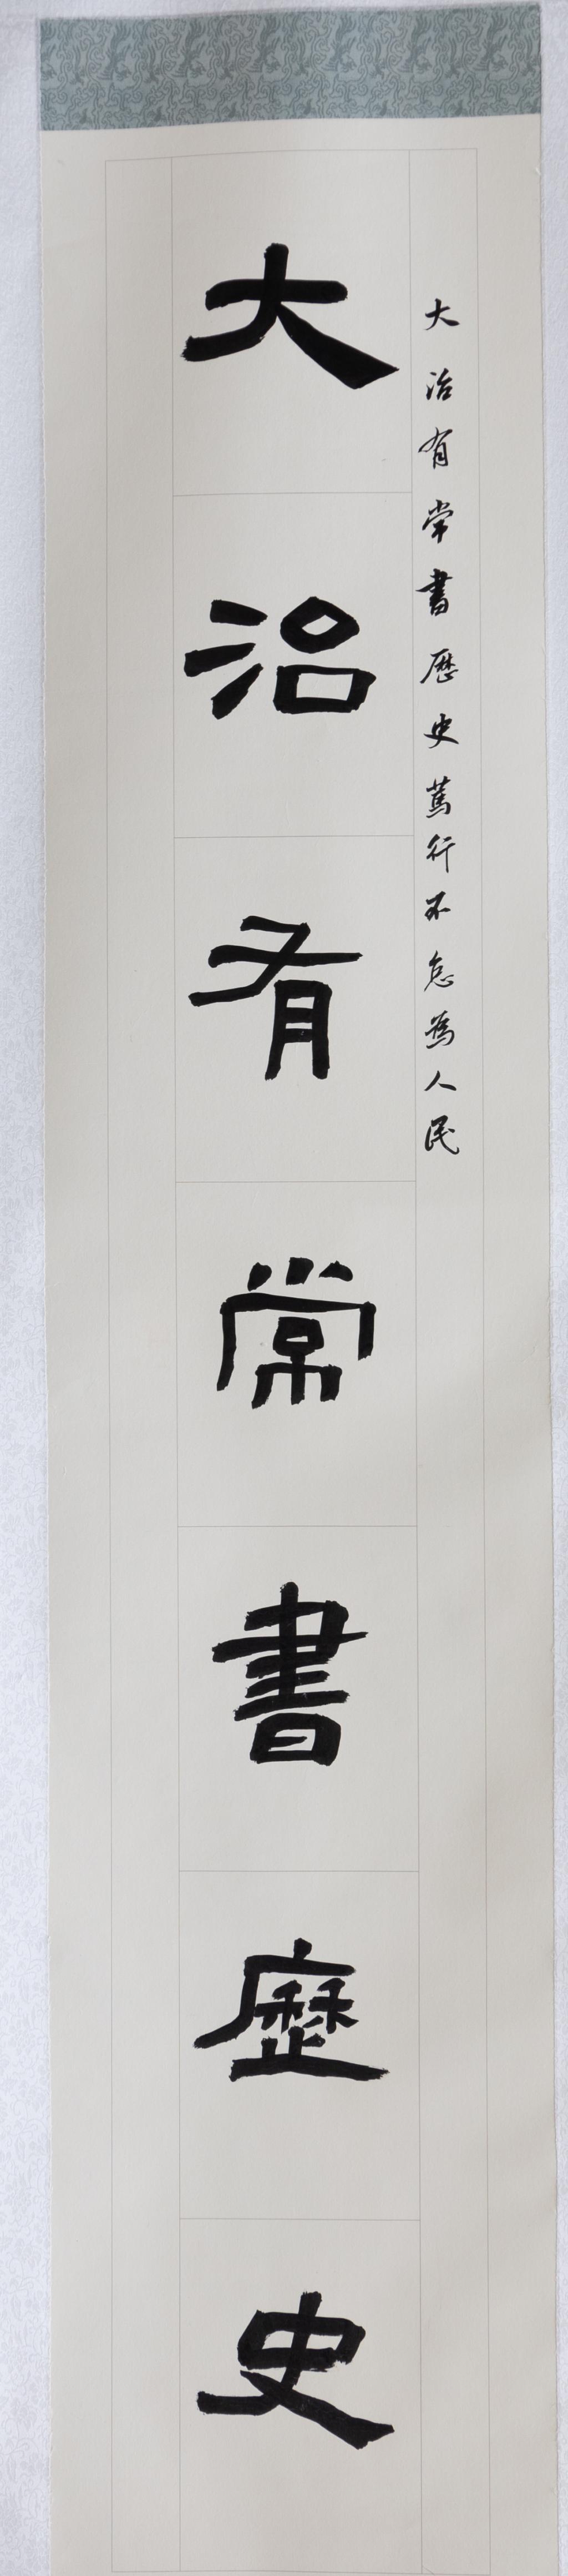 大治有常書歷史篤行不怠為人民
大治有常書歷史